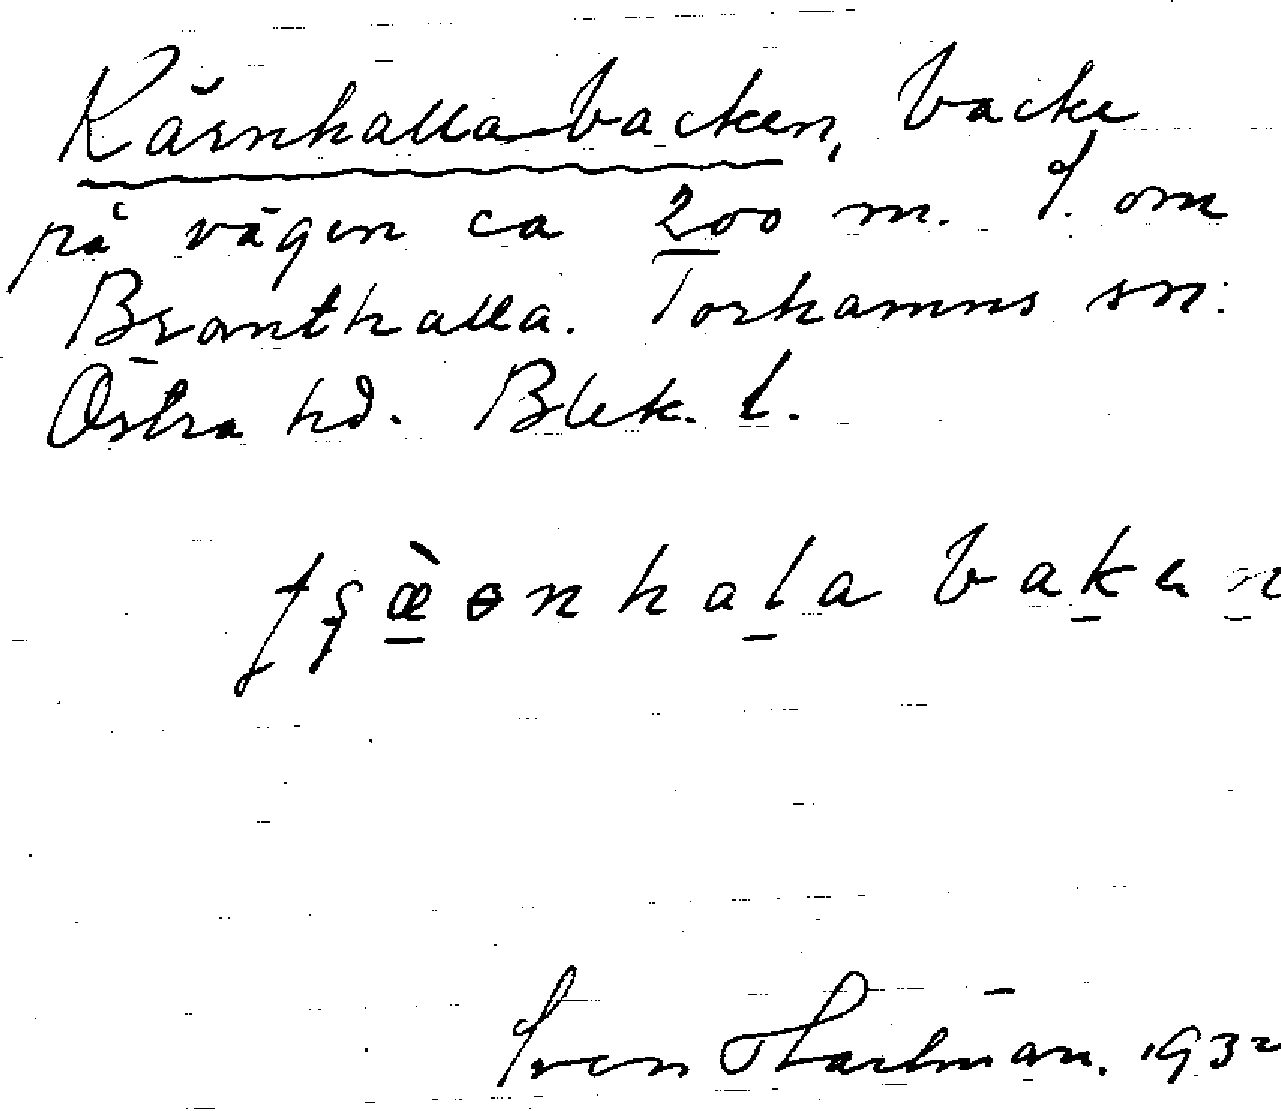 Kärnhalla backen, backe
på vägen ca 200 m. S. om
Bromthalla. Torhamns sn.
Östra hd. Blek. l.
hala bakan
Sven 1932